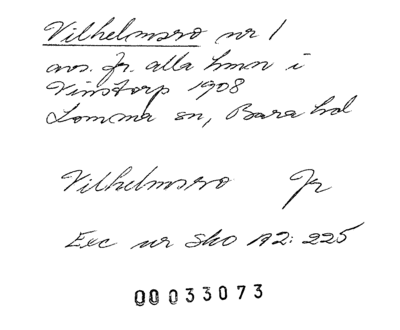 Vilhelmsro nr 1
avs. fr. alla hmn i
Vinstorp 1908
Lomma sn, Bara hd
Vilhelmsro Jr
Exc ur Sko A2: 225
00033073